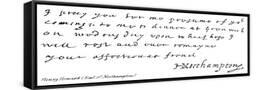 I pray you lett me presume of yor
coming to me to dinner at Greenwich
on wednesday upon which hope I
will rest and ever remayne
your assured frend
HNorthampton
Henry Howard (Earl of Northampton)